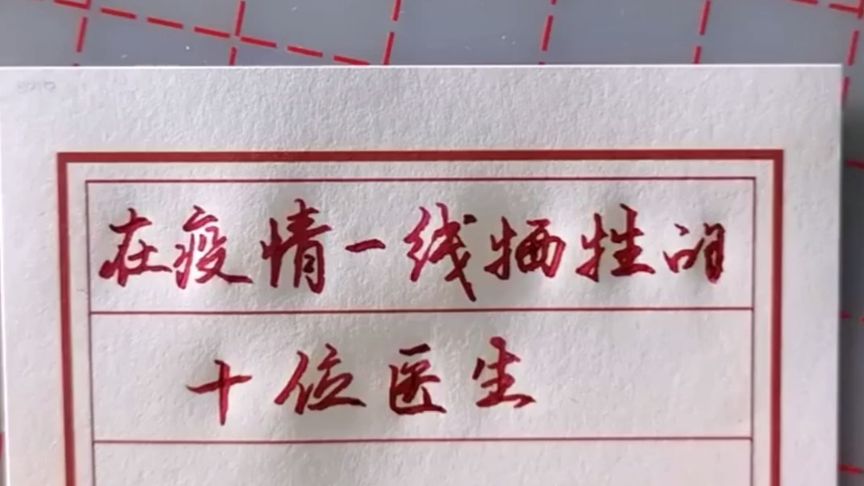 在疫情一线牺牲的
十位医生